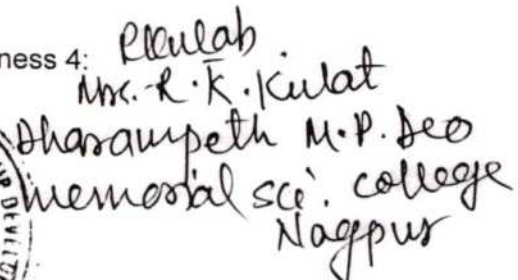 ness 4:
Mrs. R. K. Kulat
Dharampeth M.P. Deo
memorial sci. college
Nagpur